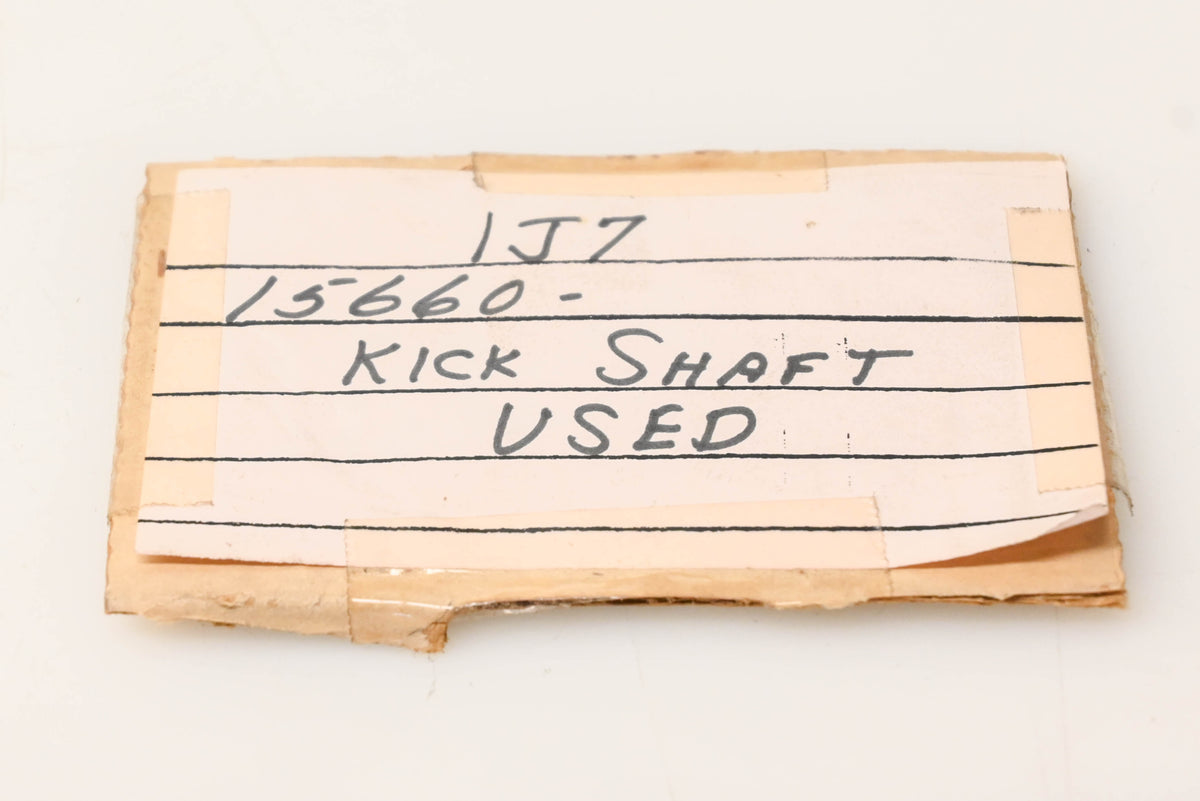 1J7
15660-
KICK SHAFT
USED